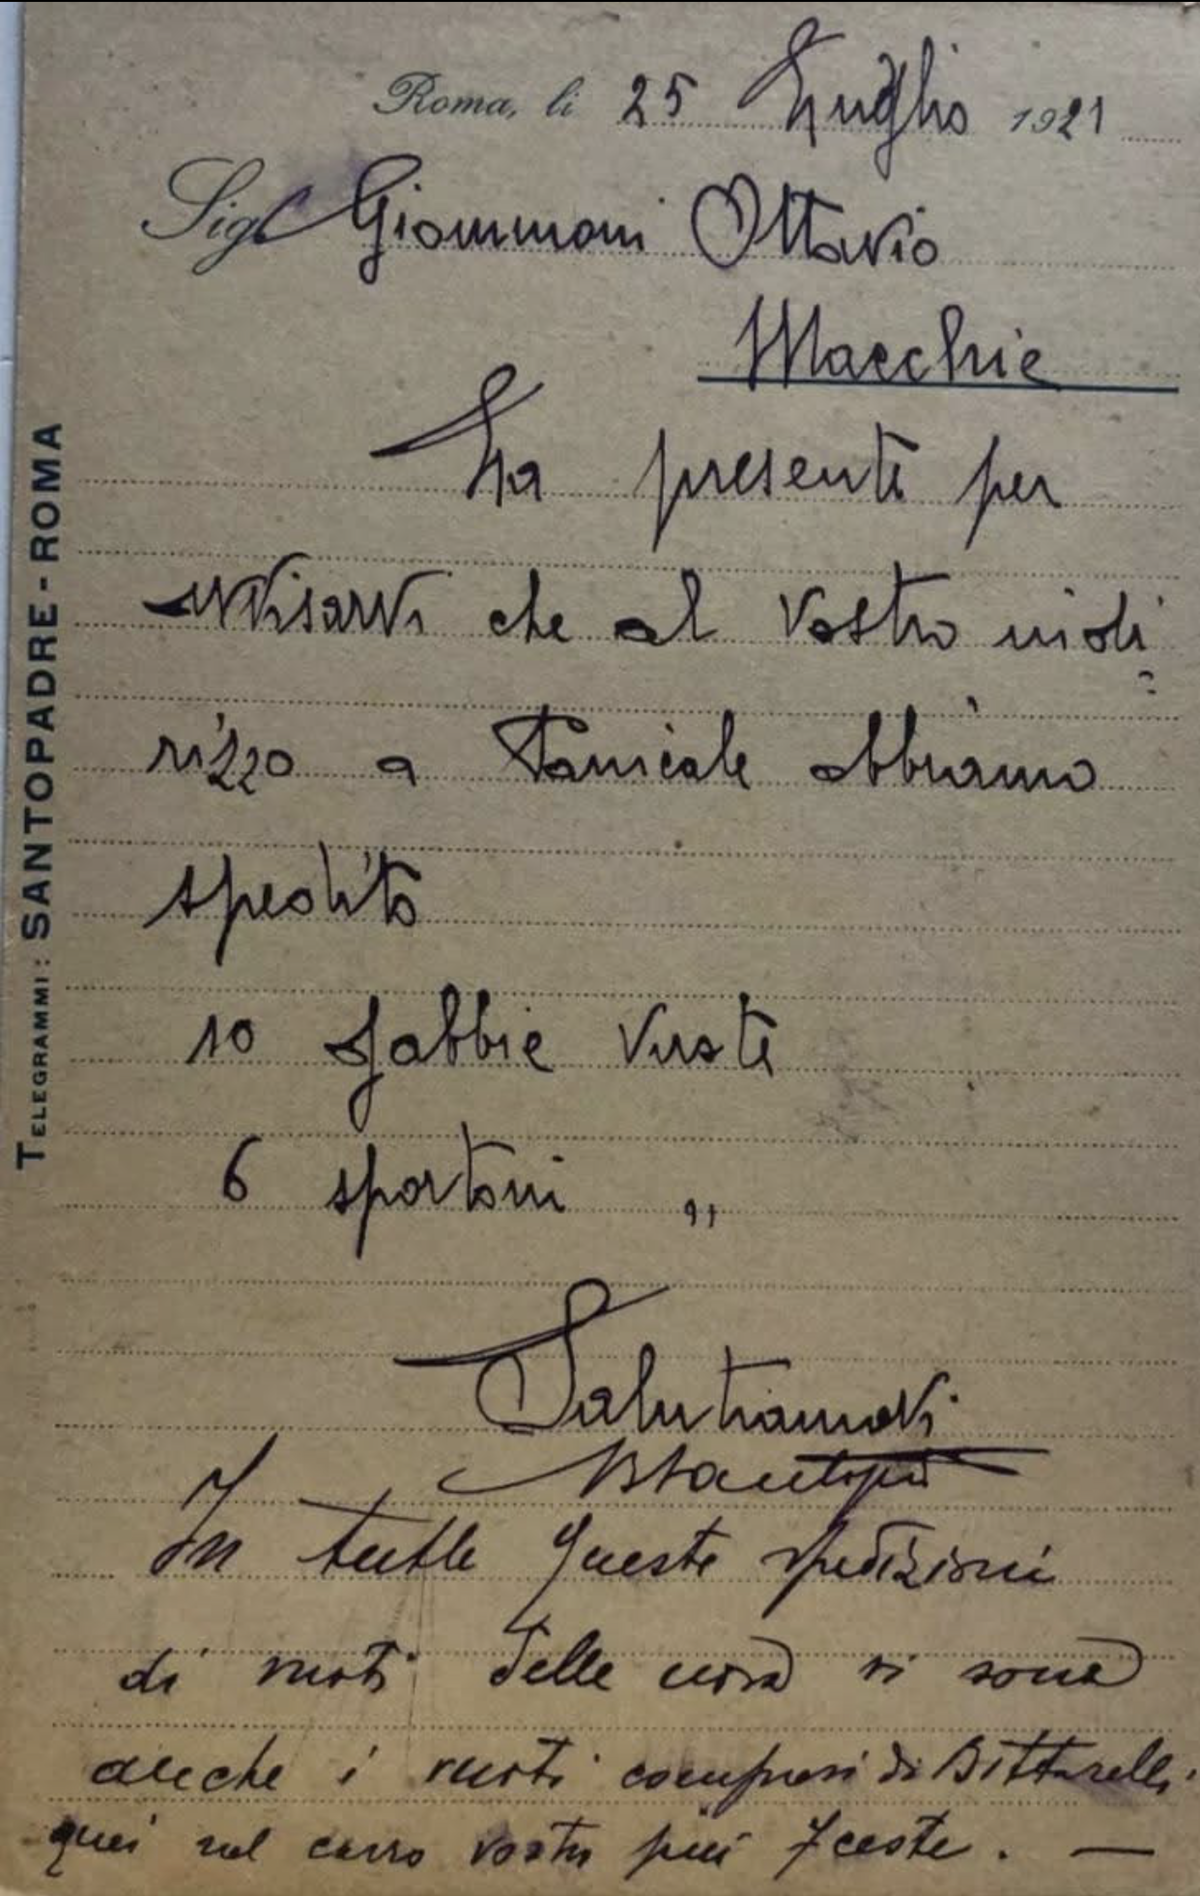 Roma, li 25 Luglio 1921
Sigr Giommoni Ottavio
Macchie
La presente per
avvisarvi che al vostro indi=
rizzo a Panicale abbiamo
spedito
10 gabbie vuote
6 sportoni „
Salutiamovi
In tutte queste spedizioni
di vuoti delle uova vi sono
anche i vuoti compresi di Bittarelli
quei sul carro vostro più 7 ceste. —
TELEGRAMMI: SANTOPADRE - ROMA